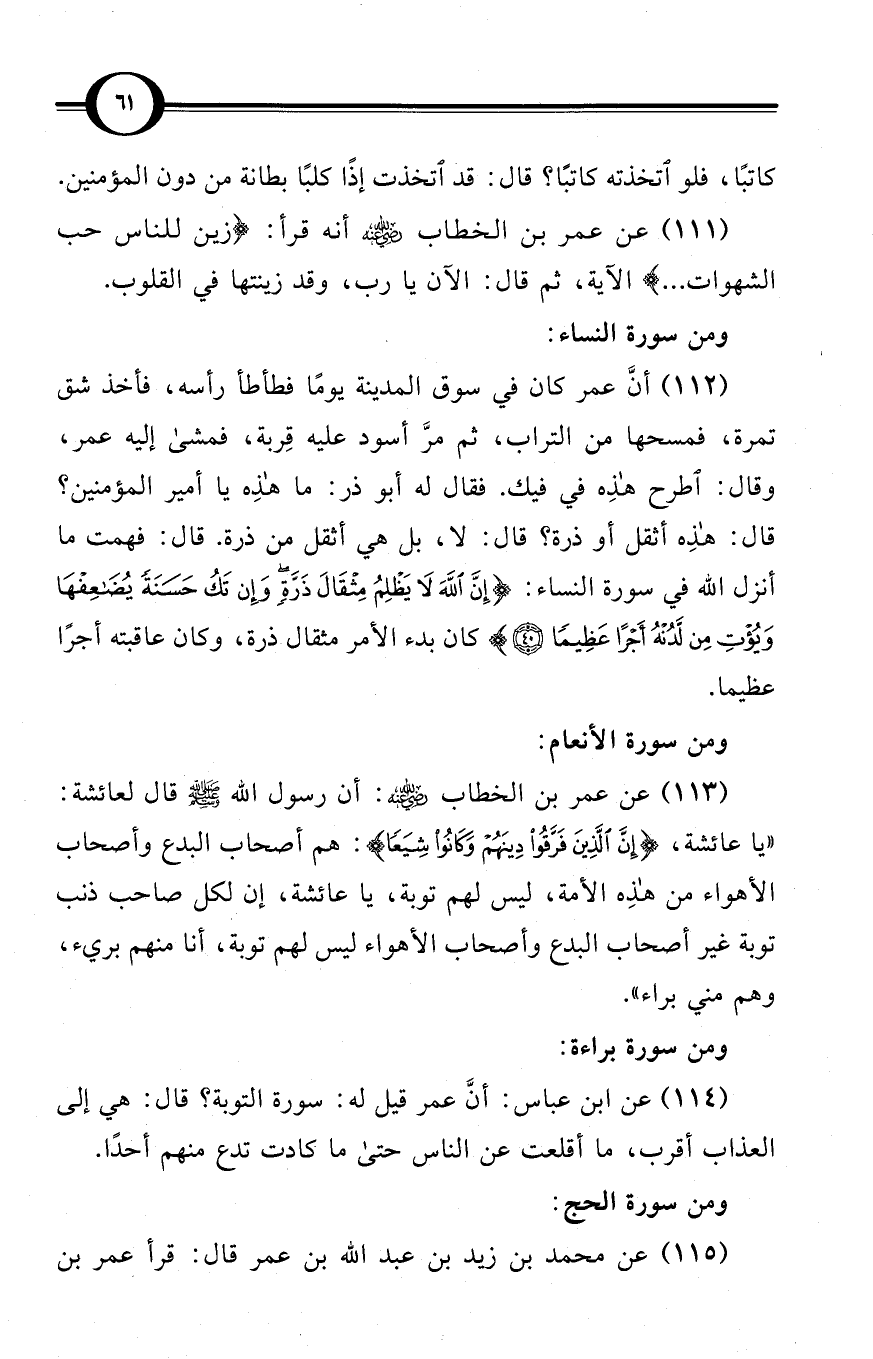 ٦١
كاتبًا، فلو ٱتخذته كاتبًا؟ قال: قد ٱتخذت إذًا كلبًا بطانة من دون المؤمنين.
(١١١) عن عمر بن الخطاب رضي الله عنه أنه قرأ: ﴿زين للناس حب
الشهوات...﴾ الآية، ثم قال: الآن يا رب، وقد زينتها في القلوب.
ومن سورة النساء:
(١١٢) أنَّ عمر كان في سوق المدينة يومًا فطأطأ رأسه، فأخذ شق
تمرة، فمسحها من التراب، ثم مرَّ أسود عليه قِربة، فمشىٰ إليه عمر،
وقال: ٱطرح هٰذِه في فيك. فقال له أبو ذر: ما هٰذِه يا أمير المؤمنين؟
قال: هٰذِه أثقل أو ذرة؟ قال: لا، بل هي أثقل من ذرة. قال: فهمت ما
أنزل الله في سورة النساء: ﴿إِنَّ ٱللَّهَ لَا يَظْلِمُ مِثْقَالَ ذَرَّةٍۖ وَإِن تَكُ حَسَنَةً يُضَٰعِفْهَا
وَيُؤْتِ مِن لَّدُنْهُ أَجْرًا عَظِيمًا ٤٠﴾ كان بدء الأمر مثقال ذرة، وكان عاقبته أجرًا
عظيما.
ومن سورة الأنعام:
(١١٣) عن عمر بن الخطاب رضي الله عنه: أن رسول الله ﷺ قال لعائشة:
«يا عائشة، ﴿إِنَّ ٱلَّذِينَ فَرَّقُوا۟ دِينَهُمْ وَكَانُوا۟ شِيَعًا﴾: هم أصحاب البدع وأصحاب
الأهواء من هٰذِه الأمة، ليس لهم توبة، يا عائشة، إن لكل صاحب ذنب
توبة غير أصحاب البدع وأصحاب الأهواء ليس لهم توبة، أنا منهم بريء،
وهم مني براء».
ومن سورة براءة:
(١١٤) عن ابن عباس: أنَّ عمر قيل له: سورة التوبة؟ قال: هي إلى
العذاب أقرب، ما أقلعت عن الناس حتىٰ ما كادت تدع منهم أحدًا.
ومن سورة الحج:
(١١٥) عن محمد بن زيد بن عبد الله بن عمر قال: قرأ عمر بن